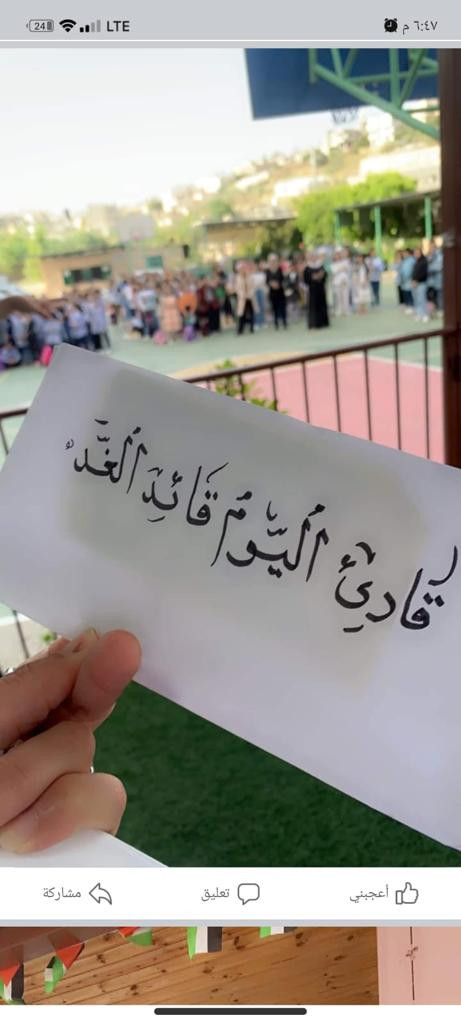 ٦:٤٧ م LTE 24
قارِئ اليَوْم قَائِد الغَد
أعجبني تعليق مشاركة